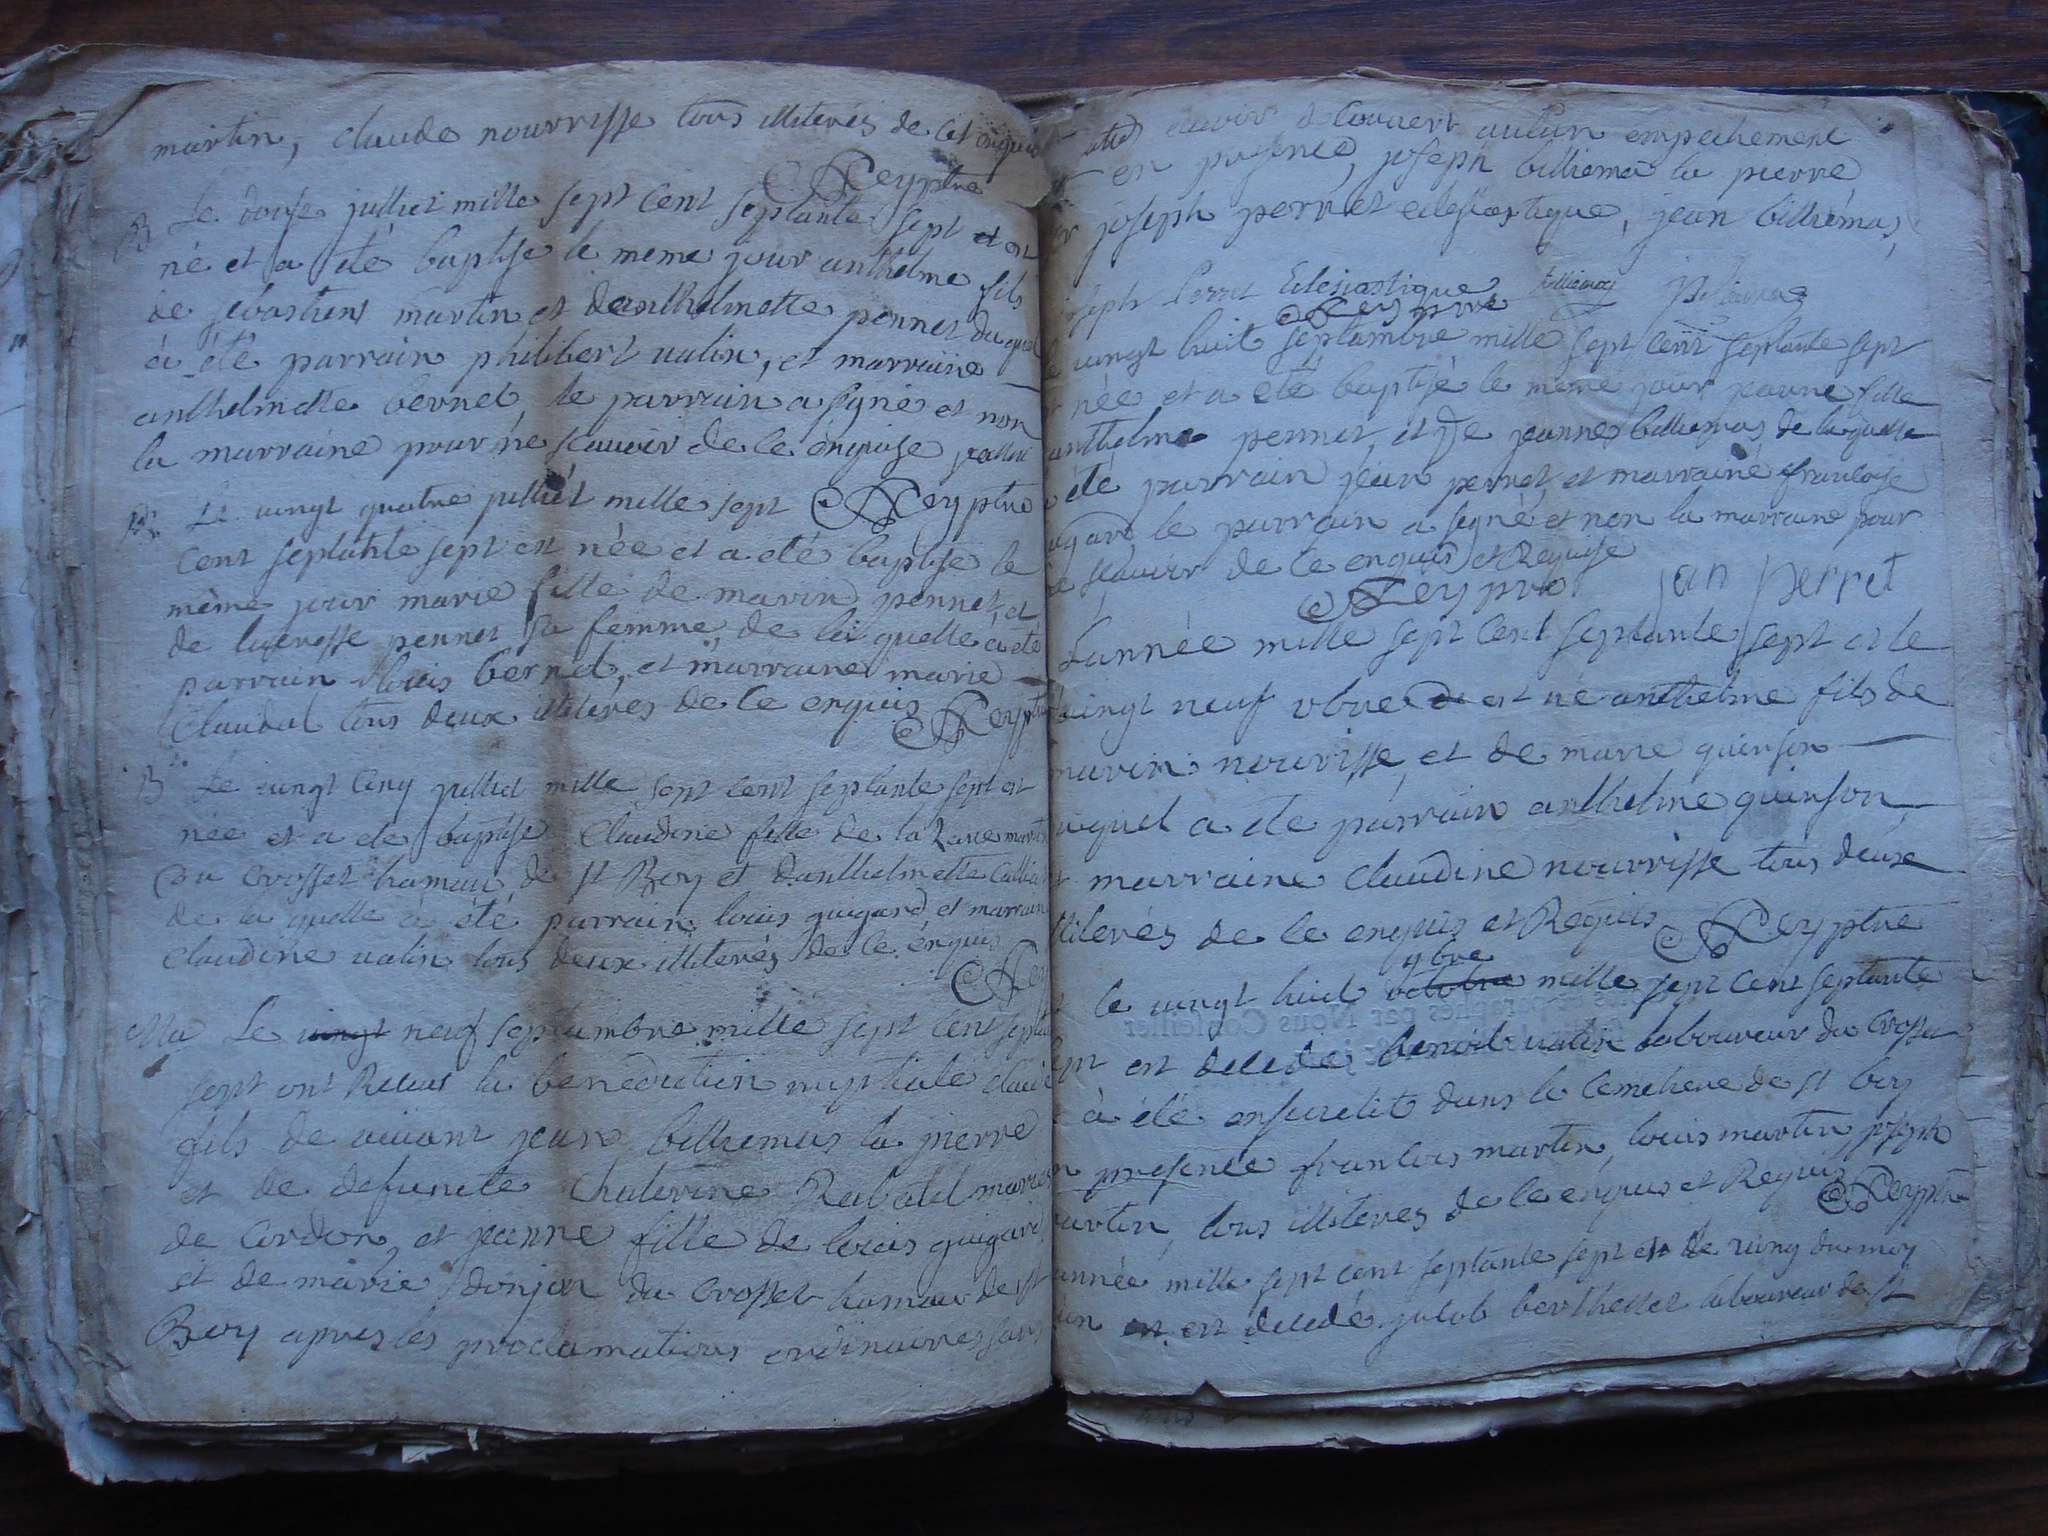 martin, claude nourrisse tous illiterés de cet enquis
Reyptre
B Le douse julliet mille sept cent septante sept est
né et a eté baptise le meme jour anthelme fils
de sebastient martin et deanthelmette pennet du quel
à été parrain philibert valin, et marraine
anthelmette bernet le parrain a signé et non
la marraine pour ne scavoir de ce enquise
Le vingt quatre julliet mille sept Reyptre
cent septante sept est née et a eté baptise le
même jour marie fille de marin pennet, et
de lucresse pennet sa femme, de la quelle a eté
parrain louis bernet, et marraine marie
Claudal tous deux illiterés de ce enquis Reyptre
B Le vingt cinq julliet mille sept cent septante sept est
née et a ete baptise Claudine fille de
du crosset hamau de st Boy et danthelmette
de la quelle à été parrain louis guigard et marraine
Claudine valin tous deux illiterés de ce enquis
Rey
Ma Le vingt neuf septambre mille sept cent septa
sept ont Receus la benediction nuptiale claude
fils de vivant jean billiemas la pierre
et de defuncte Chaterine Rabatel
de Cordon, et jeanne fille de louis guigard
et de marie donjon du crosset hamau de st
Boy apres les proclamations ordinaires sans
avoir decouvert aucun empechement
en presence, joseph billiemas la pierre,
joseph perret eclesiastique, jean billiémas,
joseph Perret Eclesiastique billiemas
Rey ptre
le vingt huit septambre mille sept cent septante sept
née et a eté baptisé le même jour fille
anthelme pennet, et de jeanne billiemas de laquelle
a été parrain jean pernet, et marraine francoise
guigard le parrain a signé et non la marraine pour
ne scavoir de ce enquis et Requise
Rey ptre jan perret
L'année mille sept cent septante sept et le
vingt neuf vbre est né anthelme fils de
marin nourrisse, et de marie quinson
duquel a ete parrain anthelme quinson
et marraine claudine nourrisse tous deux
illiterés de ce enquis et Requis Reyptre
9bre
le vingt huit octobre mille sept cent septante
sept est decede benoit valin laboureur du Crosset
à été ensevelit dans le cemetiere de st boy
en presence francois martin, louis martin, joseph
martin, tous illiteres de ce enquis et Requis
Reyptre
année mille sept cent septante sept et le du moy
est decedé jacob berthellet laboureur de st